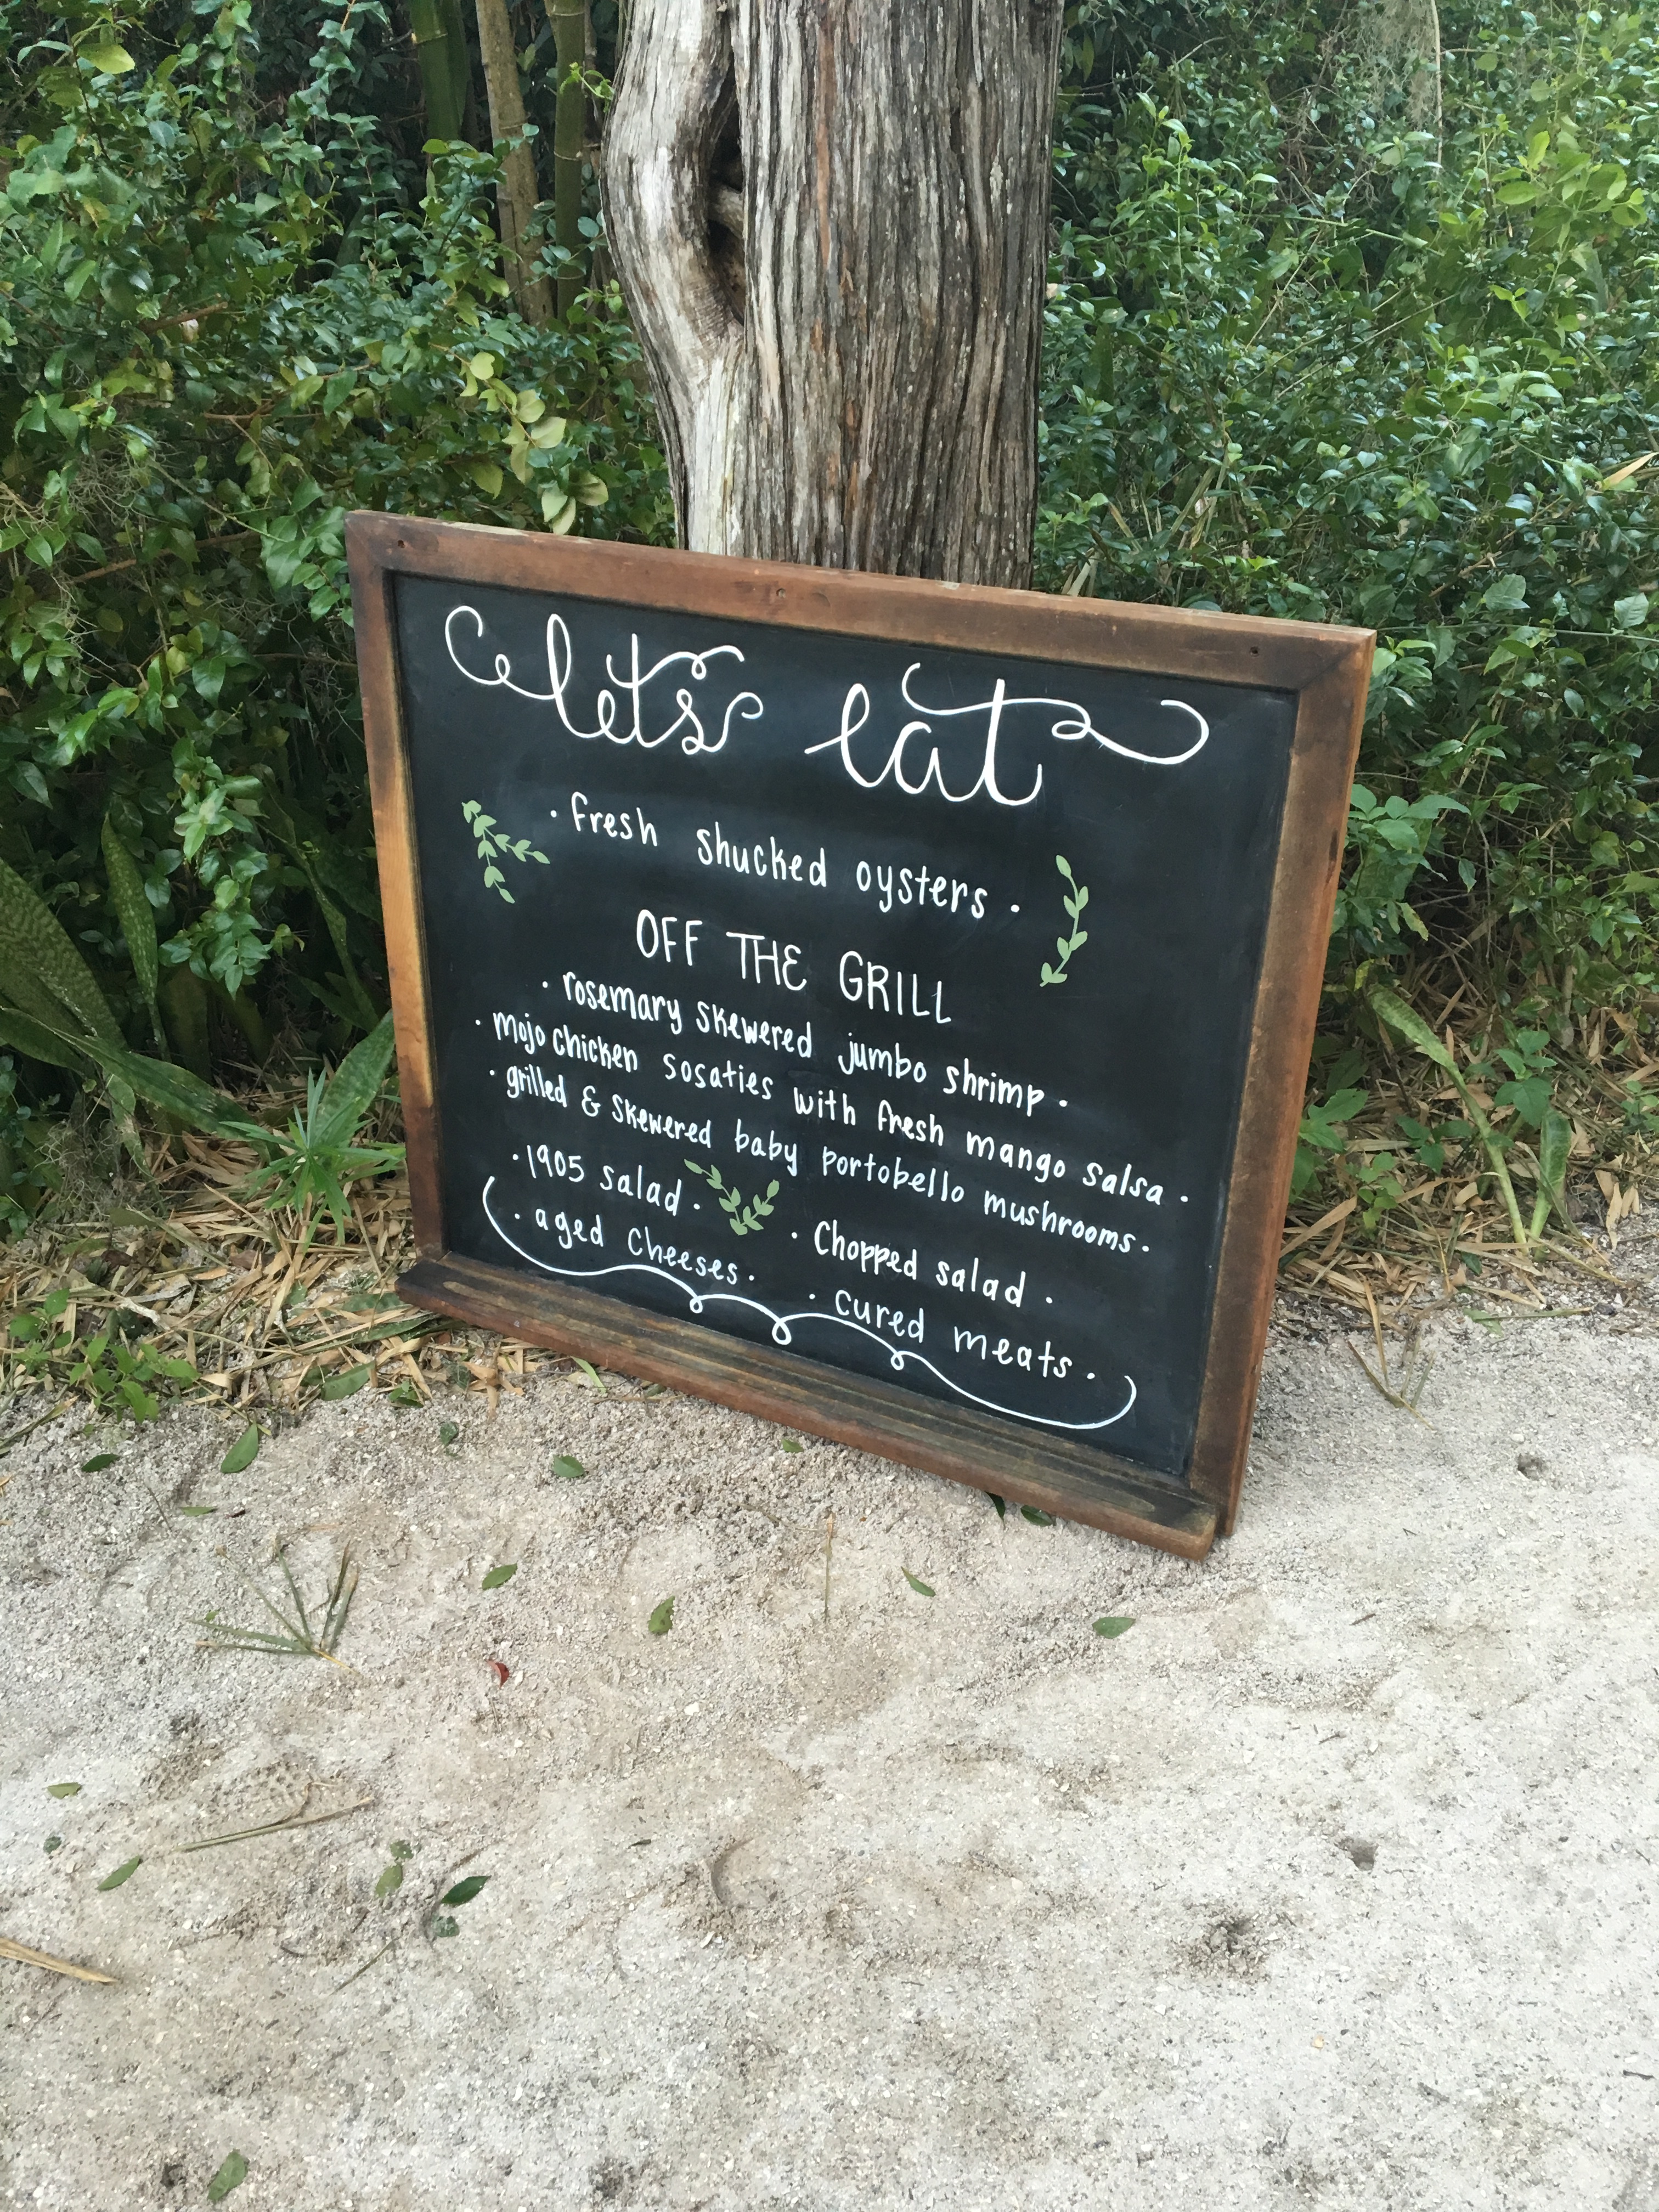 lets eat
· fresh shucked oysters ·
OFF THE GRILL
· rosemary skewered jumbo shrimp ·
· mojo chicken sosaties with fresh mango salsa ·
· grilled & skewered baby portobello mushrooms ·
· 1905 salad · · Chopped salad ·
· aged cheeses · · cured meats ·